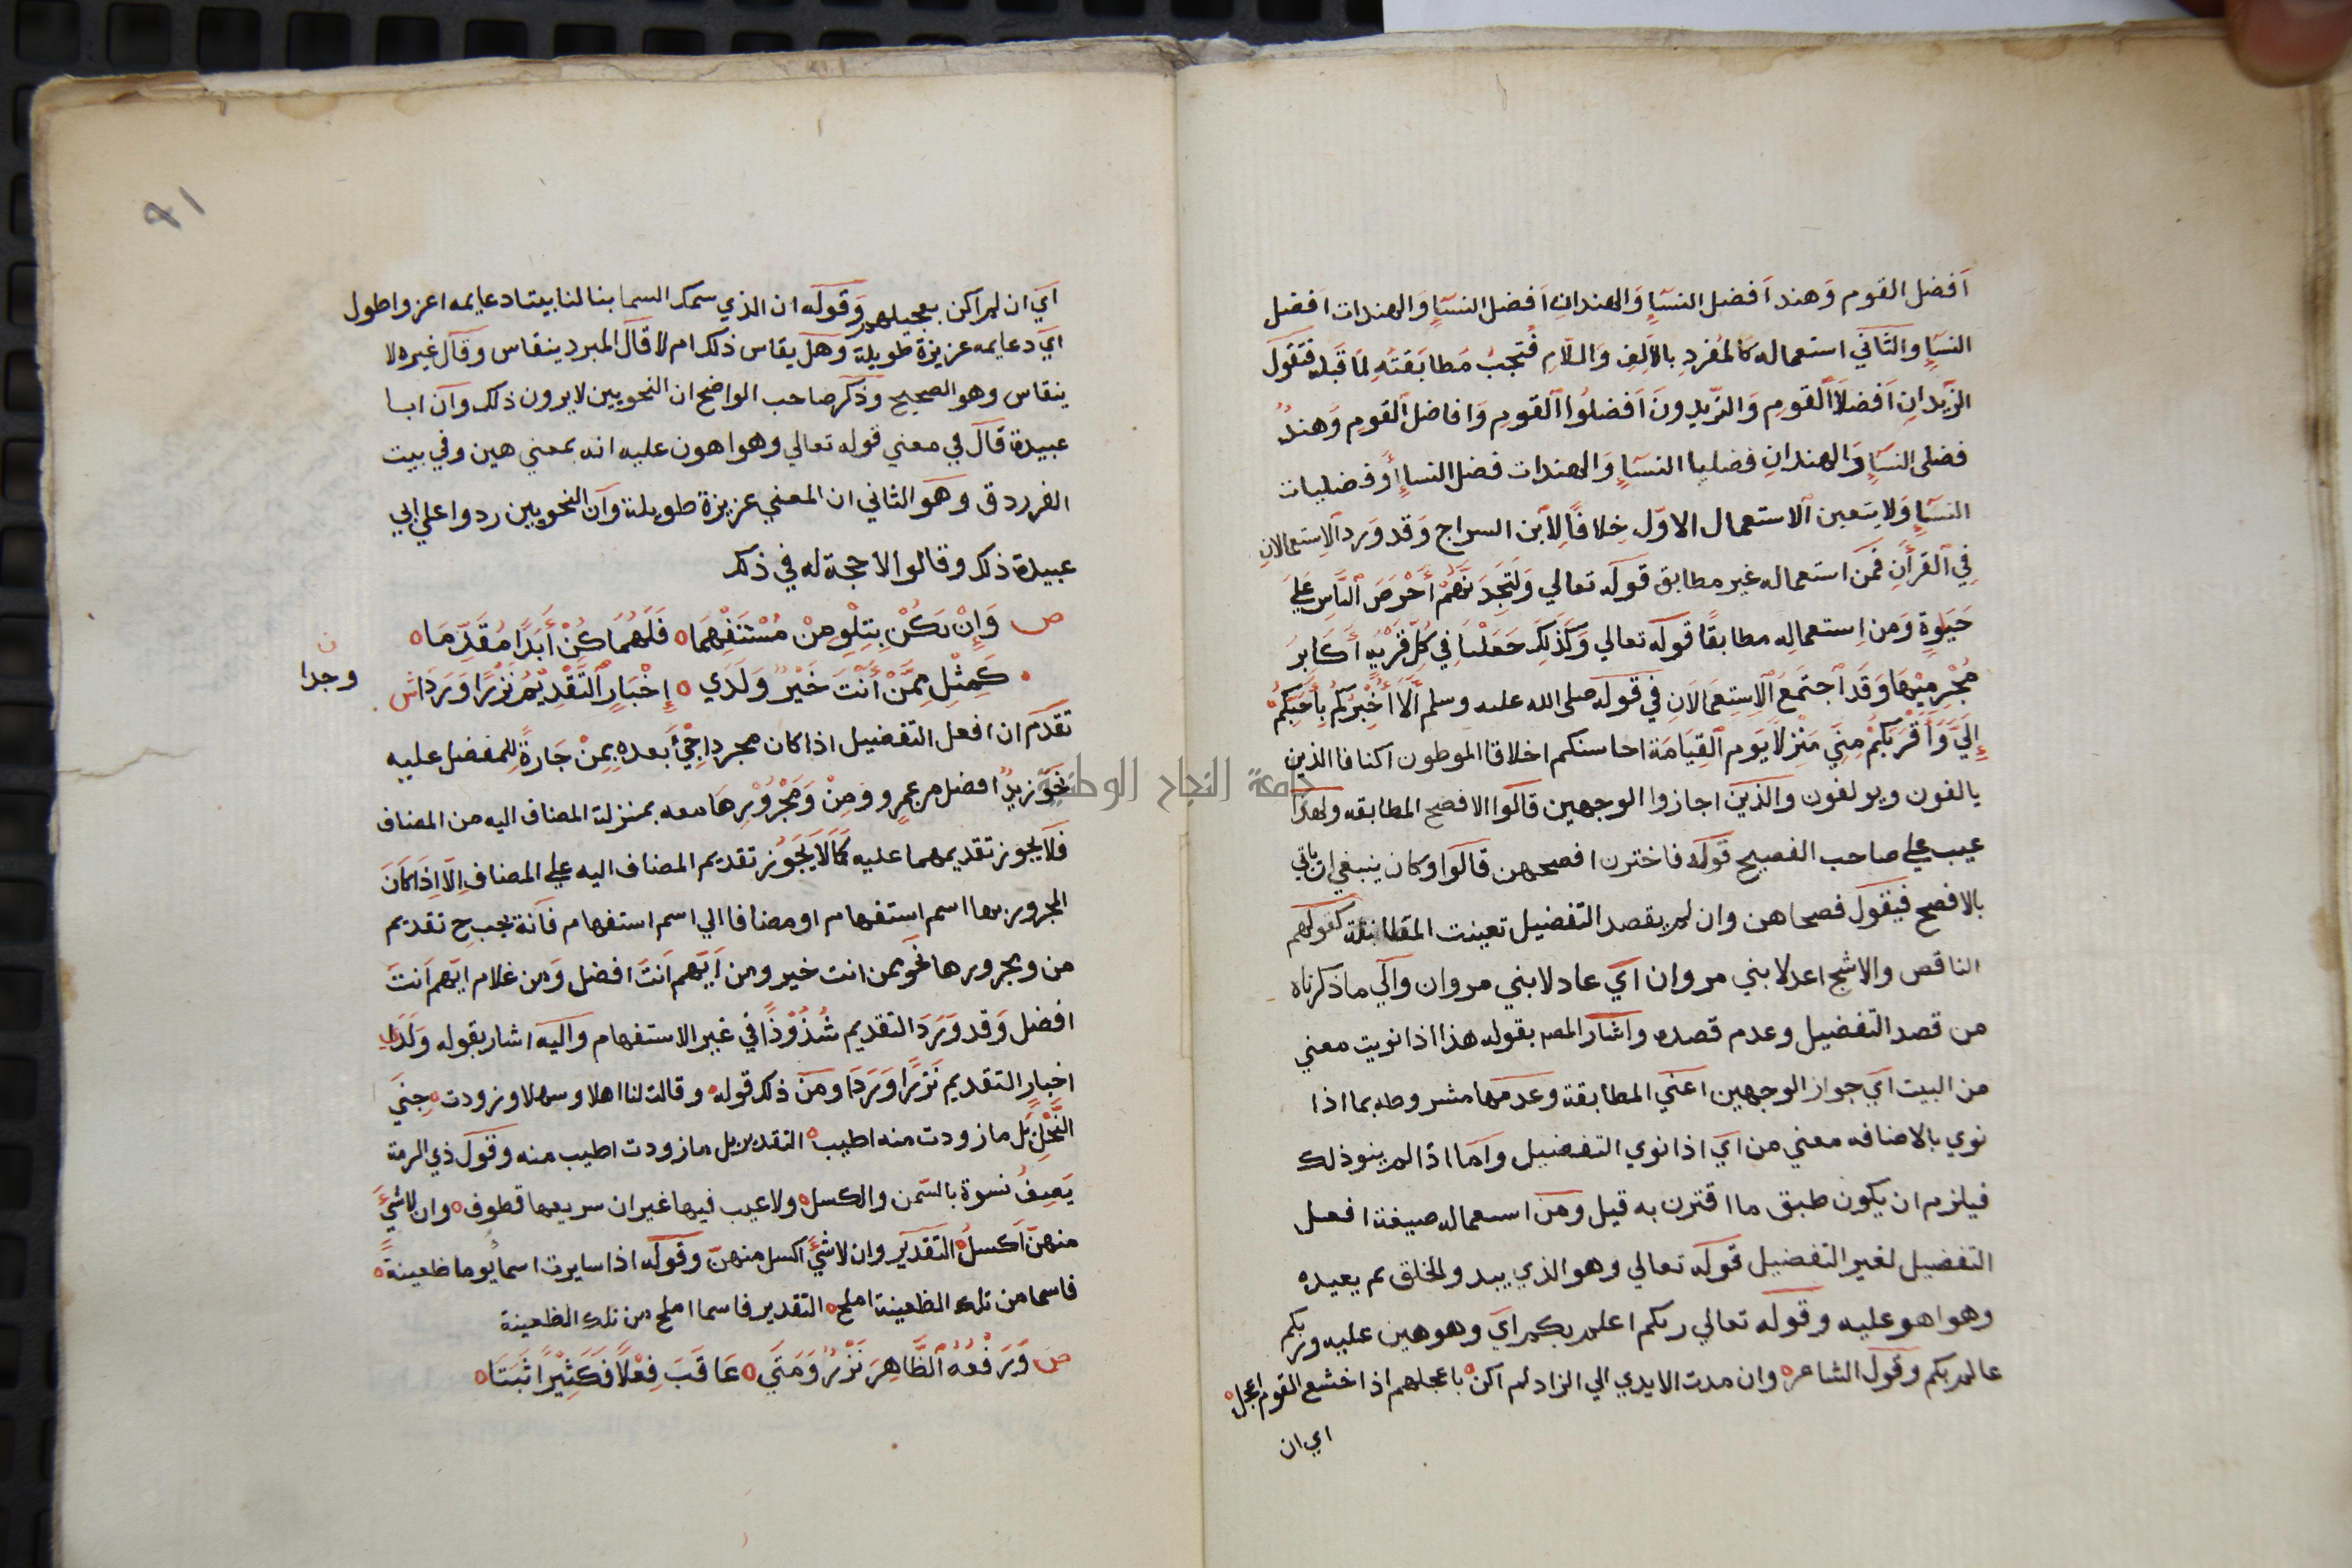 اَفضل القوم وَهند اَفضل النسَآءِ وَالهندانِ اَفضل النسَآءِ وَالهندات اَفضل
النسَآءِ وَالثَاني استعماله كالمُفردِ بالاَلِفِ وَاللَّامِ فَتجبُ مُطابَقتهِ لمَا قَبله فتقول
الزَيدانِ اَفضلَا القومِ وَالزَيدونَ اَفضلُوا القومِ وَافاضل القومِ وَهندُ
فضلى النسَآءِ وَالهندانِ فضليا النسَآءِ وَالهندات فضل النسَآءِ اَوفضليات
النسَآءِ وَلا يتعين الاستعمال الاوّل خِلافًا لِابن السراج وَقد وَرد الاِستعمالانِ
فِي القرأنِ فمَن استعماله غير مطابق قوله تعالي وَلَتَجِدَنَّهُمْ أَحْرَصَ النَّاسِ عَلَي
حَيَوةٍ وَمن اِستعمالِه مطابقًا قوله تعالي وَكَذَلِكَ جَعَلْنَا فِي كُلِّ قَرْيَةٍ أَكَابِرَ
مُجْرِمِيْهَا وَقَد اجتَمعَ الاِستِعمَالاَنِ في قوله صلى الله عليه وسلم أَلَا أُخْبِرُكُم بِأَحَبِّكُمْ
إِلَيَّ وَأَقْرَبكُمْ مِنِّي مَنْزلًا يَوم القِيَامَة احاسنكم اخلاقا الموطون اكنافا الذين
يالفون ويولفون وَالذَين اجازوا الوجهين قالوا الافصح المطابقه ولهذا
عيب على صاحب الفصيح قوله فاخترن افصحهن قالوا وكان ينبغي ان ياتي
بالافصح فيقول فصحاهن وان لم يقصد التفضيل تعينت المطابقة كقولهم
الناقص والاشج اعدلا بني مروان اي عادلا بني مروان وَالي ماذكرناه
من قصد التفضيل وعدم قصده واشار المصر بقوله هذا اذا نويت معني
من البيت اي جواز الوجهين اعني المطابقة وعدمها مشروطه بما اذا
نوي بالاضافه معني من اي اذا نوي التفضيل وَاما اذا لم ينو ذلك
فيلزم ان يكون طبق ما اقترن به قيل وَمن استعماله صيغة افعل
التفضيل لغير التفضيل قوله تعالي وهو الذي يبدو الخلق ثم يعيده
وهو اهو عليه وقوله تعالي ربكم اعلم بكم اي وهو هين عليه وربكم
عالم بكم وقول الشاعر وان مدت الايدي الي الزاد لم اكن باعجلهم اذا خشع القوم اعجل
اي ان
٩١
اي ان لم اكن بعجيلهم وَقوله ان الذي سمك السما بنا لنا بيتا دعايمه اعز واطول
اي دعايمه عزيزة طويلة وَهل يقاس ذلك ام لا قال المبرد ينقاس وقال غيره لا
ينقاس وهو الصحيح وَذكر صاحب الواضح ان النحويين لا يرون ذلك وَان ابا
عبيدة قال في معني قوله تعالي وهو اهون عليه انه بمعني هين وفي بيت
الفرزدق وَهو الثاني ان المعني عزيزة طويلة وَان النحويين ردوا علي ابي
عبيدة ذلك وقالوا لا حجة له في ذلك
ص وَإِنْ تَكُنْ بِتِلْوِ مِنْ مُسْتَفْهِمَا فَلَهُمَا كُنْ أَبَدًا مُقَدِّمَا
كَمِثْلِ مِمَّنْ أَنْتَ خَيْرٌ وَلَدَي إِخْبَارٍ التَّقْدِيْمُ نَزْرًا وَرَدَا ش
ن وجدا
تقدم ان افعل التفضيل اذا كان مجردا جِئَ بَعده بِمِنْ جَارةً للمفضل عليه
نحو زيدٌ افضل من عمرٍو وَمِنْ وَمَجْرُوْرِهَا معه بمنزلة المضاف اليه من المضاف
فَلا يجوز تقديمهما عليه كَمَا لَا يَجُوْز تقديم المضاف اليه علي المضافِ اِلَّا اِذَا كَانَ
المجرور بها اسم استفهام او مضافا الي اسم استفهام فَانَّه يجب ح تقديم
من ومجرورها نحو ممن انت خير ومن اَيّهم اَنتَ افضل وَمن غلام ايّهم اَنتَ
افضل وَقد وَرَدَ التقديم شُذُوْذًا في غير الاستفهام وَاليه اشار بقوله وَلَدَي
اخبارٍ التقديم نَزرًا وَرَدَا وَمن ذلك قوله وقالت لنا اهلا وسهلا وزودت جِنَي
النَّحْلِ بَل ما زودت منه اطيب التقدير بل ما زودت اطيب منه وَقول ذي الرمة
يَصِفُ نسوة بالسَّمن والكسل ولا عيب فيها غير ان سريعها قطوف وان لا شيَ
منهنّ اَكسلُ التقدير وان لا شئَ اكسل منهنّ وَقوله اذا سايرت اسما يَوما ظعينةً
فاسما من تلك الظعينة املح التقدير فاسما املح من تلك الظعينة
ص وَرَفْعُهُ الظَّاهِرَ نَزْرٌ وَمَتَي عَاقَبَ فِعْلًا فَكَثِيْرًا ثَبَتَا
جامعة النجاح الوطنية